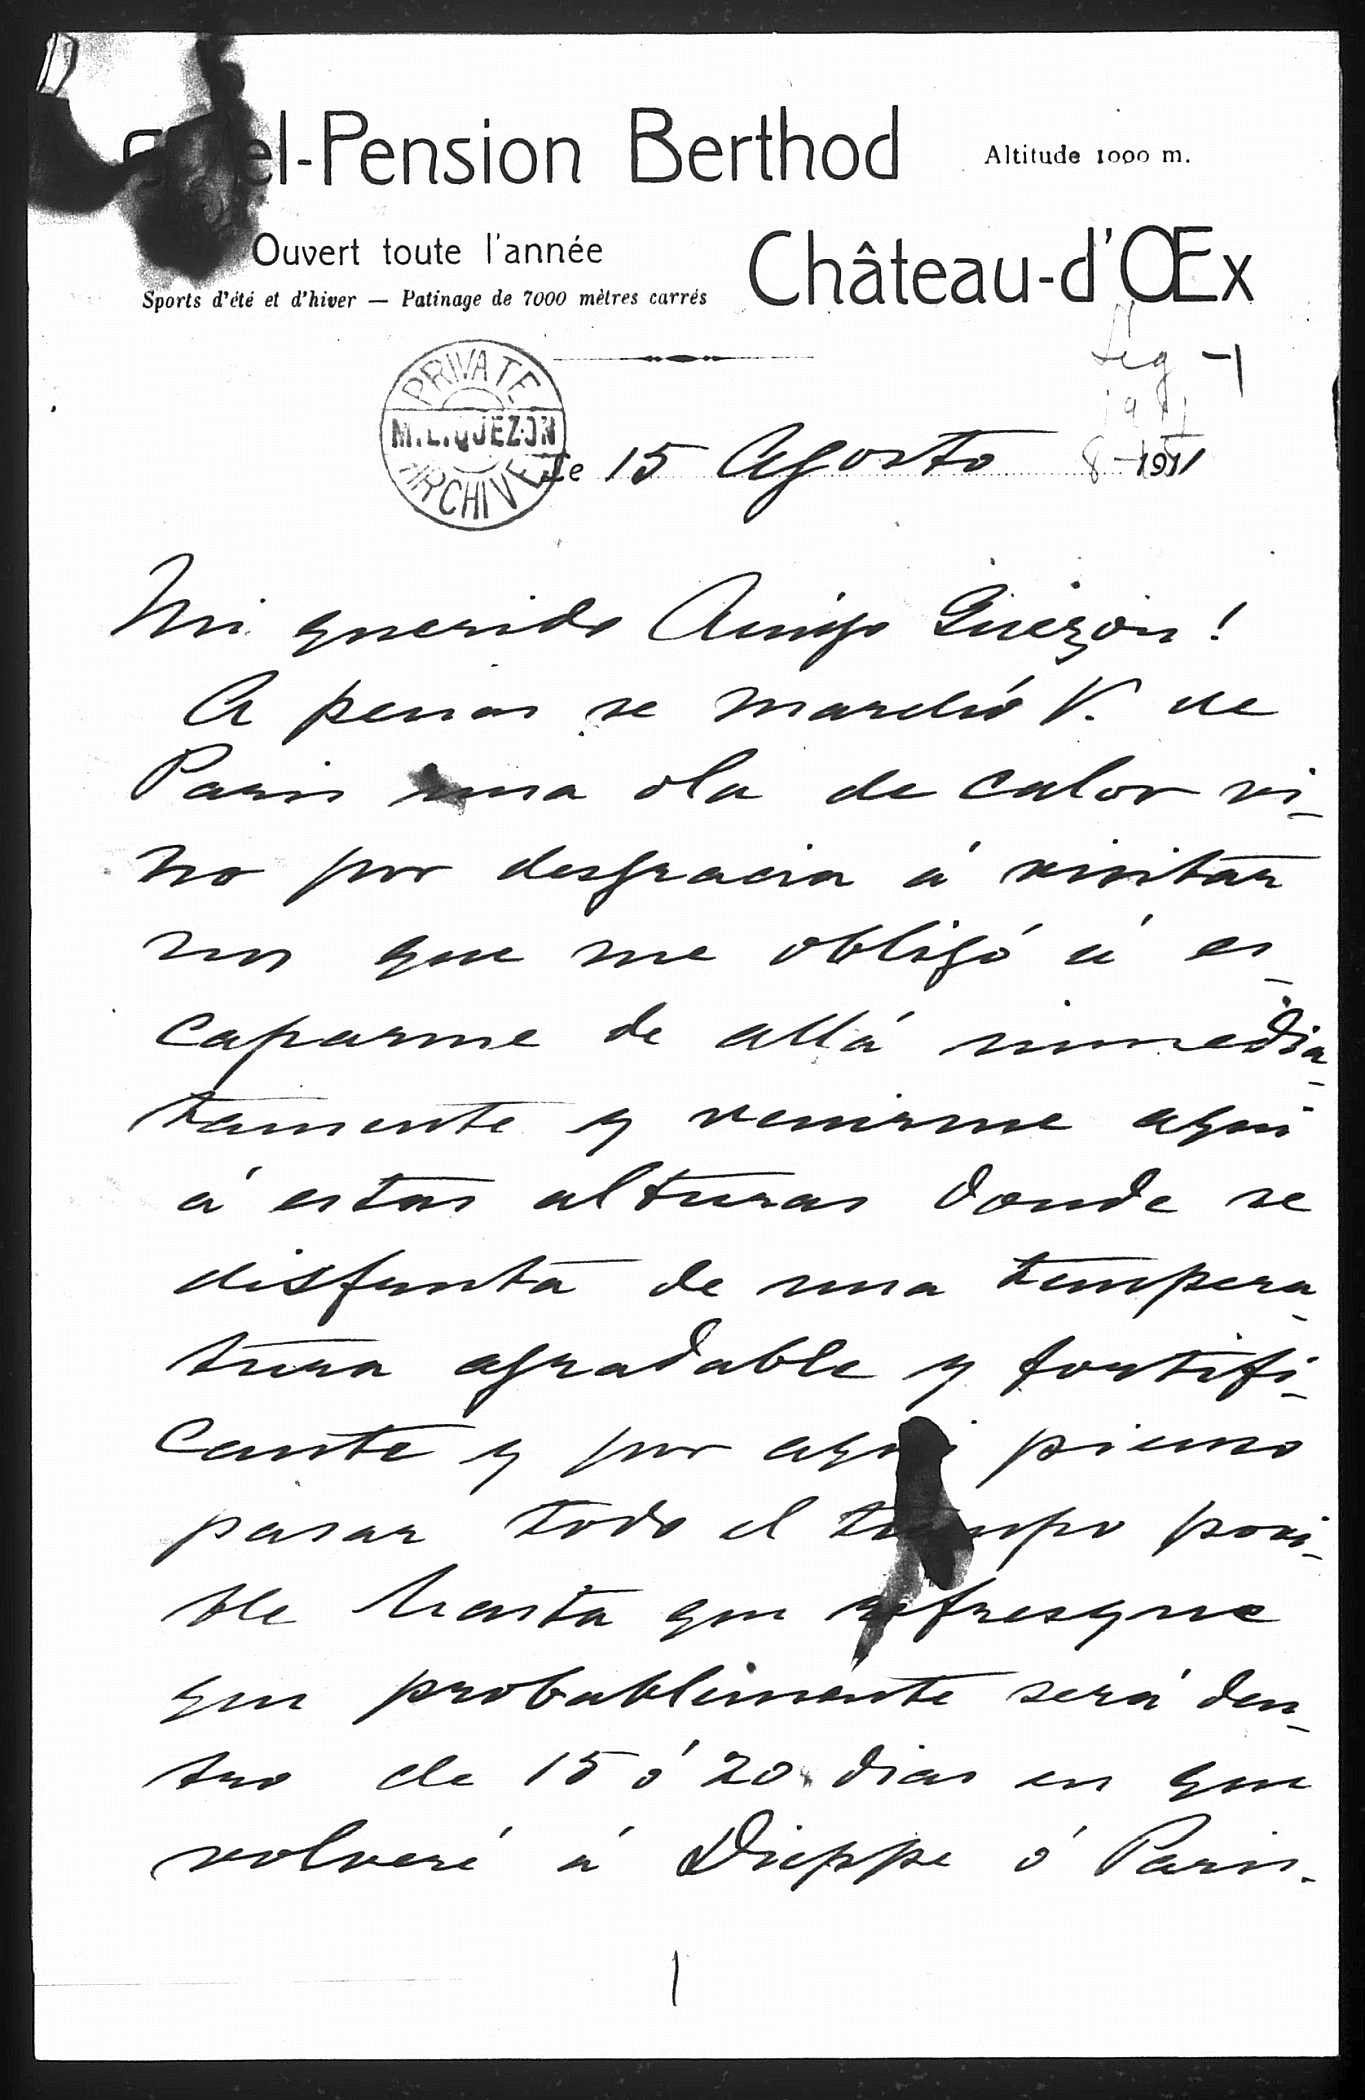 Hôtel-Pension Berthod
Altitude 1000 m.
Ouvert toute l'année
Château-d'Œx
Sports d'été et d'hiver — Patinage de 7000 mètres carrés
PRIVATE
M.L.QUEZON
ARCHIVE
-1
Le 15 Agosto 1911
Mi querido Amigo Quezon!
A penas se marchó V. de
Paris una ola de calor vi-
no por desgracia á visitar
nos que me obligó á es-
caparme de allá inmedia-
tamente y venirme aqui
á estas alturas donde se
disfruta de una tempera-
tura agradable y fortifi-
cante y por aqui pienso
pasar todo el tiempo posi-
ble hasta que refresque
que probablemente será den-
tro de 15 ó 20 dias en que
volveré á Dieppe ó Paris.
1